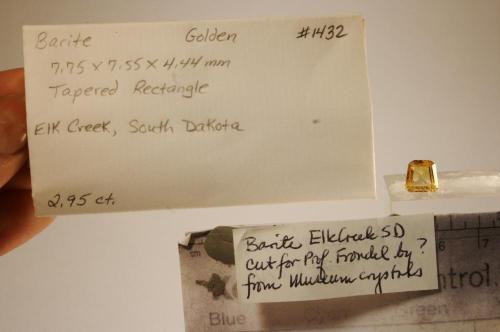 Barite Golden #1432
7.75 x 7.55 x 4.44 mm
Tapered Rectangle
Elk Creek, South Dakota
2.95 ct.
Barite Elk Creek SD
cut for Prof. Frondel by ?
from Museum crystals
6 7
Blue Green
ntrol.